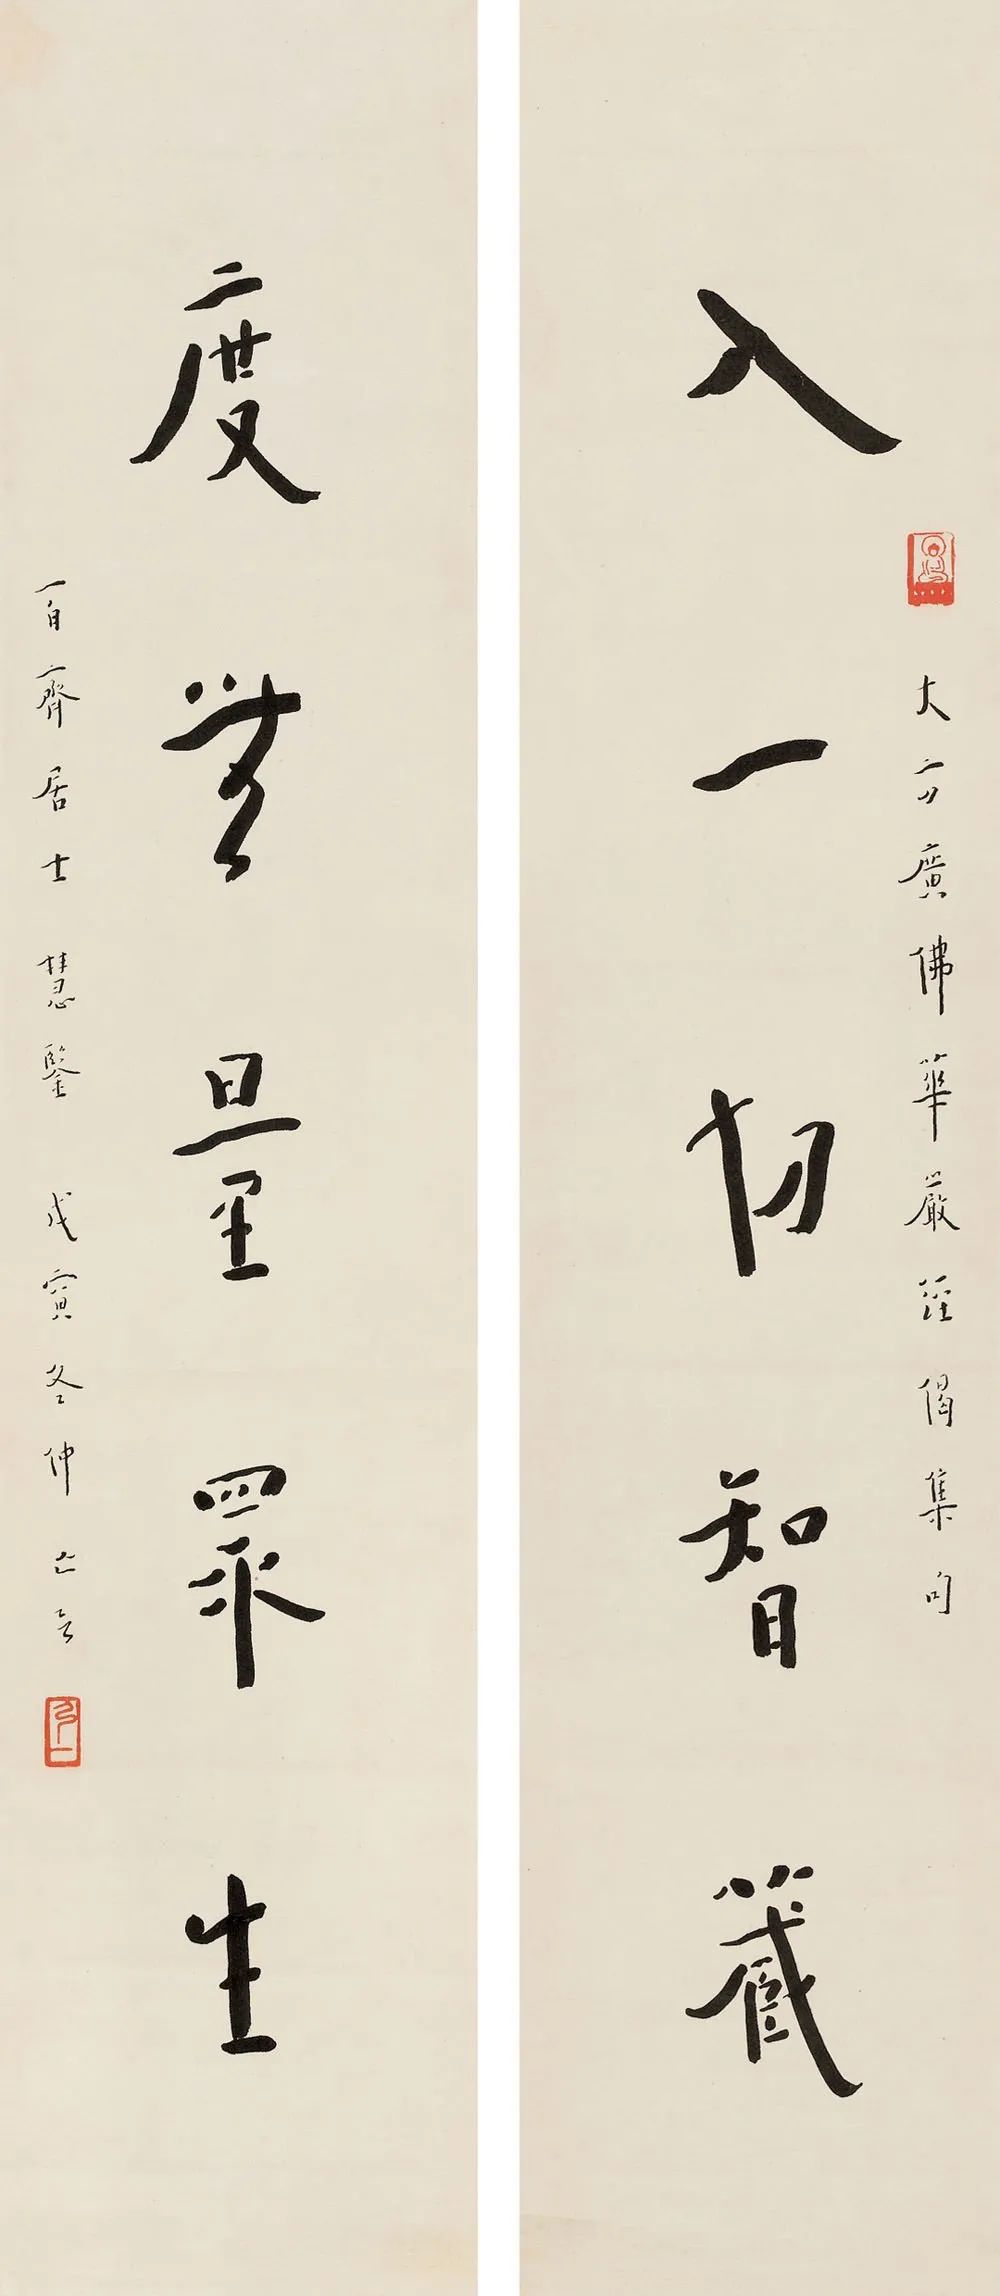 入一切智藏
大方廣佛華嚴經偈集句
度無量眾生
百齊居士慧鑒 戊寅冬仲亡言